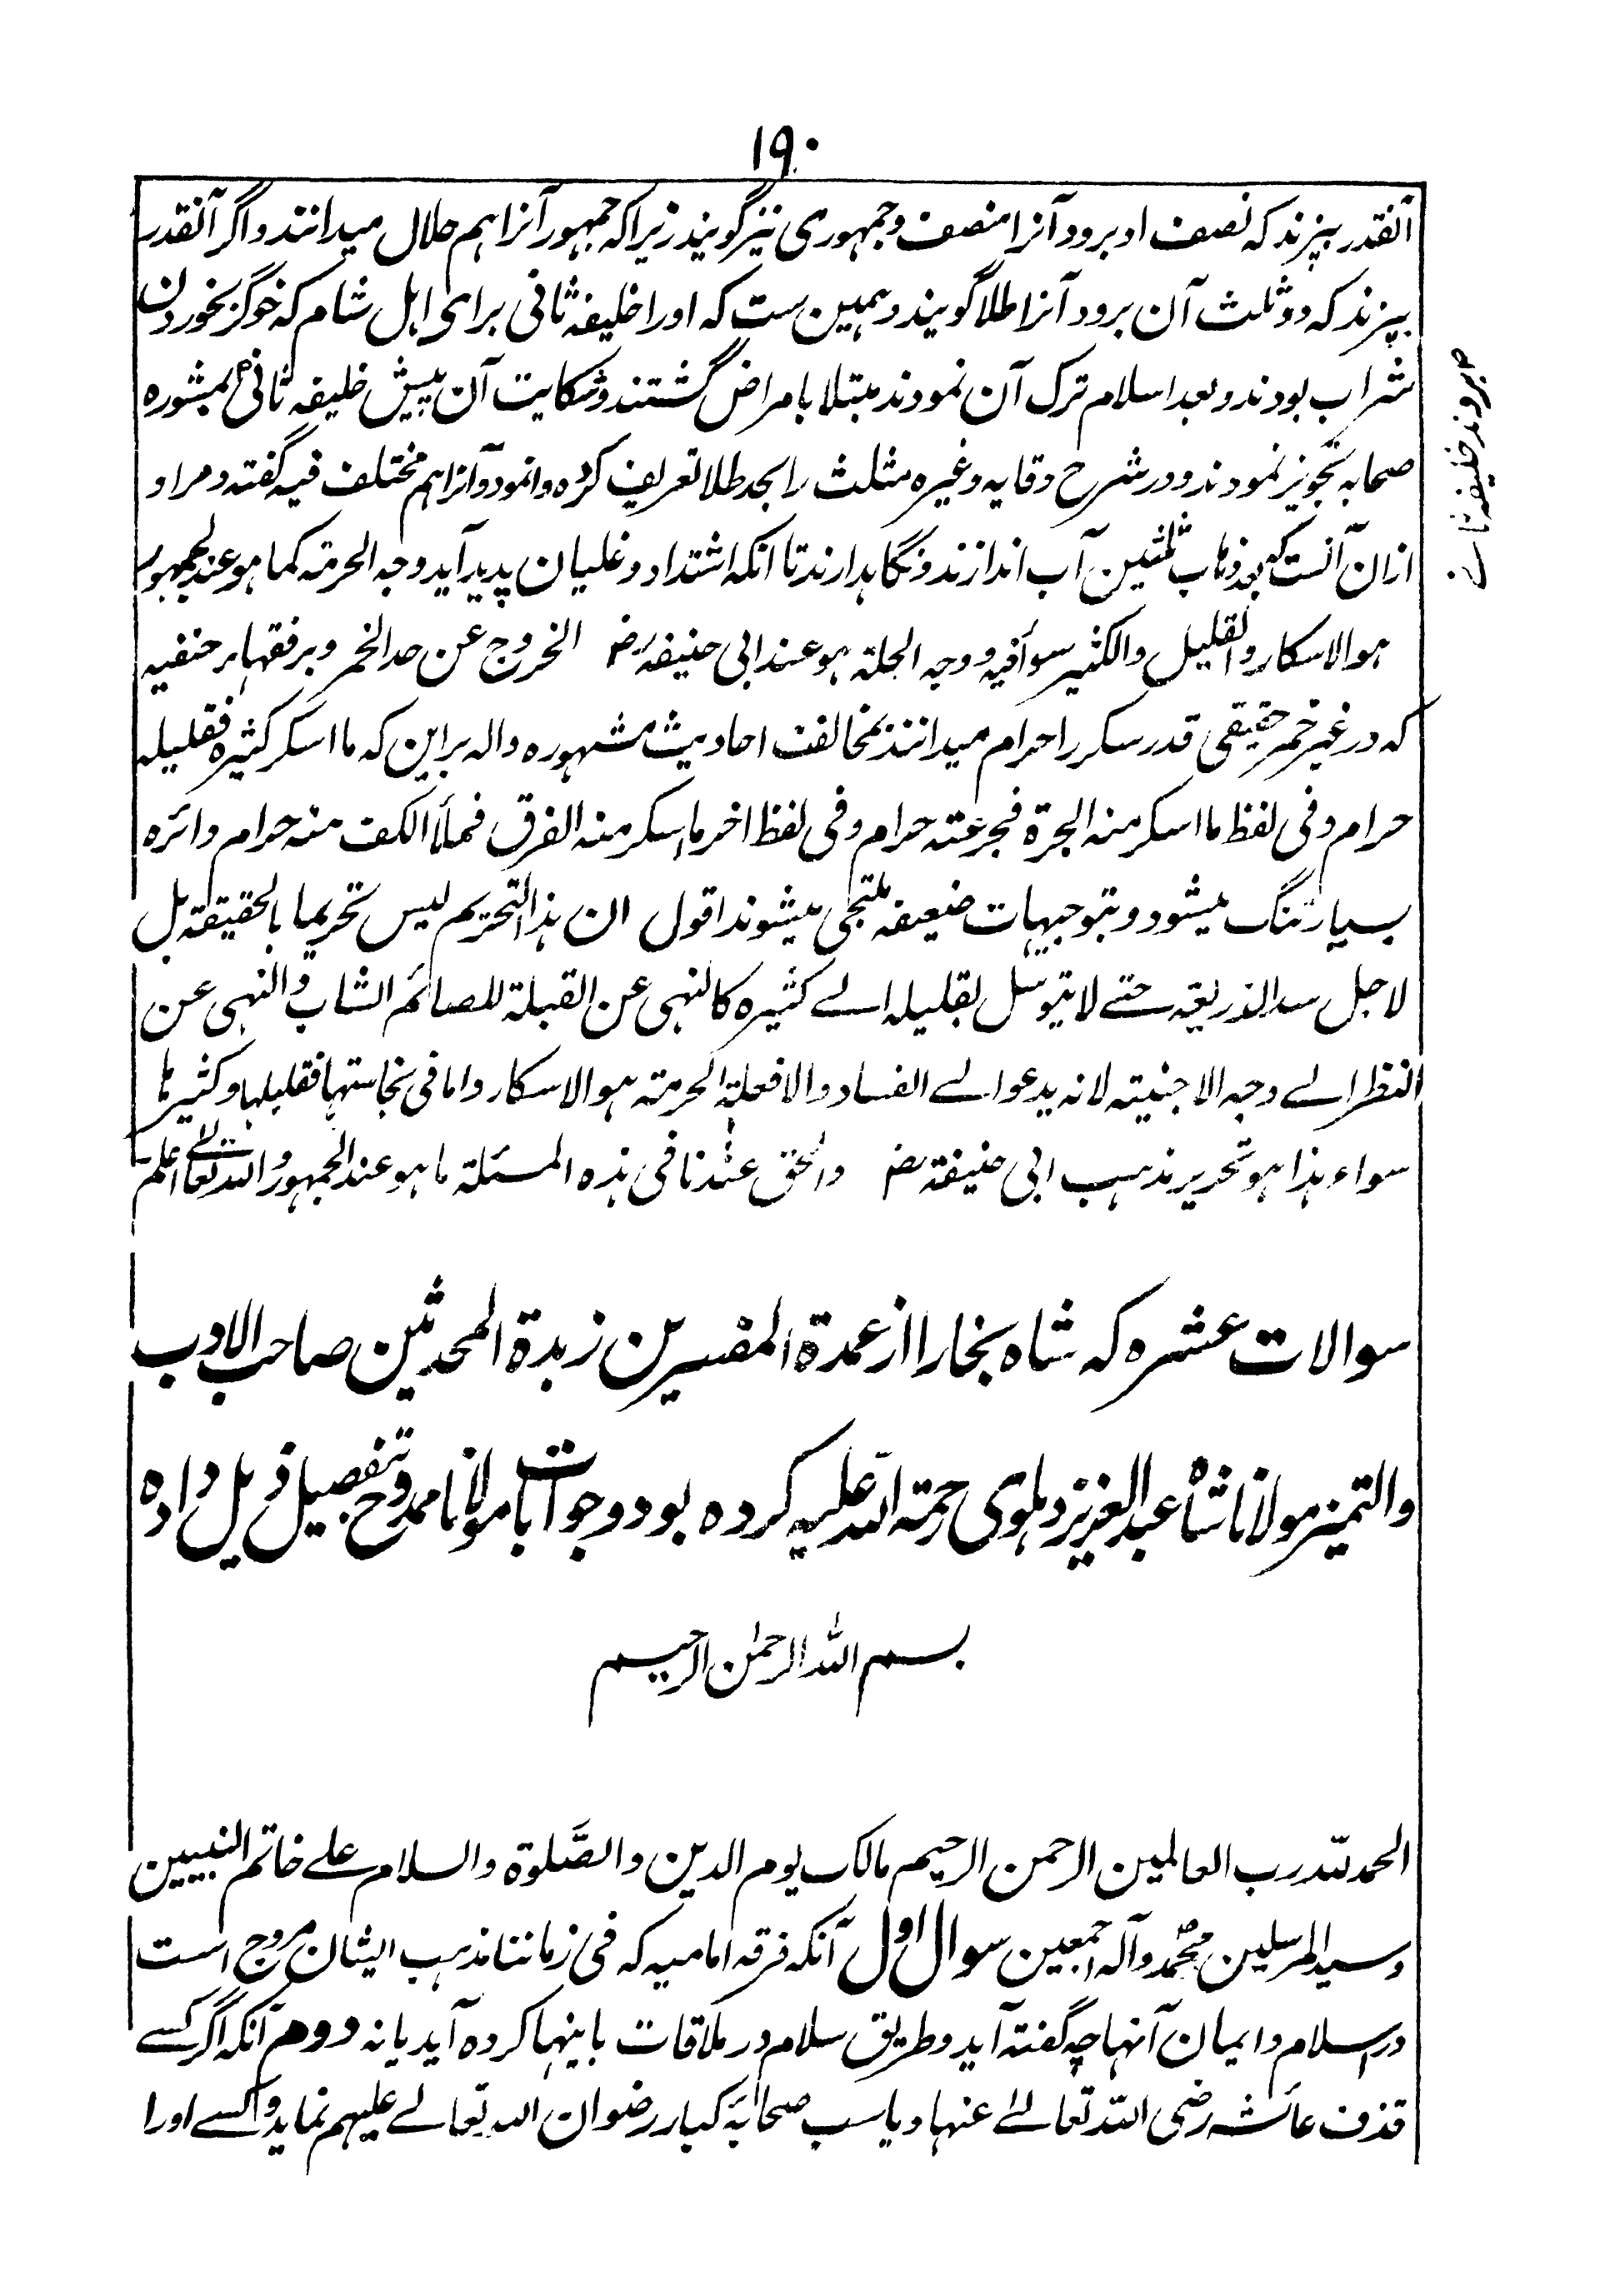 ١٩٠
آنقدر بپزند که نصف او برود آنرا منصف و جمهوری نیز گویند زیرا که جمهور آنرا هم حلال میدانند و اگر آنقدر
بپزند که دو ثلث آن برود آنرا طلا گویند و همین ست که او را خلیفه ثانی برای اهل شام که خوگر بخوردن
شراب بودند و بعد اسلام ترک آن نمودند مبتلا بامراض گشتند و شکایت آن پیش خلیفه ثانی بمشوره
صحابه تجویز نمودند و در شرح وقایه وغیره مثلث را بحد طلا تعریف کرده وانمود و آنرا هم مختلف فیه گفته و مراد
ازان آنست که بعد ذهاب ثلثین آب اندازند و نگاهدارند تا آنکه اشتداد و غلیان پدید آید وجه الحرمته کما هو عند الجمهور
هو الاسکار والقلیل والکثیر سوأ فیه و وجه الحلة هو عند ابی حنیفه رض الخروج عن حد الخمر و بر فقهاء حنفیه
که در غیر خمر حقیقی قدر سکر را حرام میدانند بمخالفت احادیث مشهوره داله براین که ما اسکر کثیره فقلیله
حرام و فی لفظ ما اسکر منه الجرة فجرعته حرام و فی لفظ اخر ما اسکر منه الفرق فملأ الکف منه حرام دائره
بسیار تنگ میشود و بتوجیهات ضعیفه ملتجی میشوند اقول ان هذا التحریم لیس تحریما بالحقیقة بل
لاجل سد الذریعة حتے لا یتوسل بقلیله الے کثیره کالنهی عن القبلة للصائم الشاب و النهی عن
النظر الے وجه الاجنبیته لانه یدعو الے الفساد والا فعلة الحرمته هو الاسکار واما فی نجاستها فقلیلها وکثیرها
سواء هذا هو تحریر مذهب ابی حنیفة رض والحق عندنا فی هذه المسئلة ما هو عند الجمهور والله تعالے اعلم
م برو نزد خلیفه ثانے
سوالات عشره که شاه بخارا از عمدة المفسرین زبدة المحدثین صاحب الادب
والتمیز مولانا شاه عبد العزیز دهلوی رحمته الله علیه کرده بود و جوابات مولانا ممدوح بتفصیل ذیل داده
بسم الله الرحمن الرحیم
الحمد لله رب العالمین الرحمن الرحیم مالک یوم الدین والصَّلوة والسلام علے خاتم النبیین
وسید المرسلین محمد وآله اجمعین سوال اول آنکه فرقه امامیه که فی زماننا مذهب ایشان مروج است
در اسلام و ایمان آنها چه گفته آید و طریق سلام در ملاقات باینها کرده آید یا نه دوم آنکه اگر کسے
قذف عائشه رضی الله تعالے عنها و یا سب صحابۀ کبار رضوان الله تعالے علیهم نماید و کسے او را